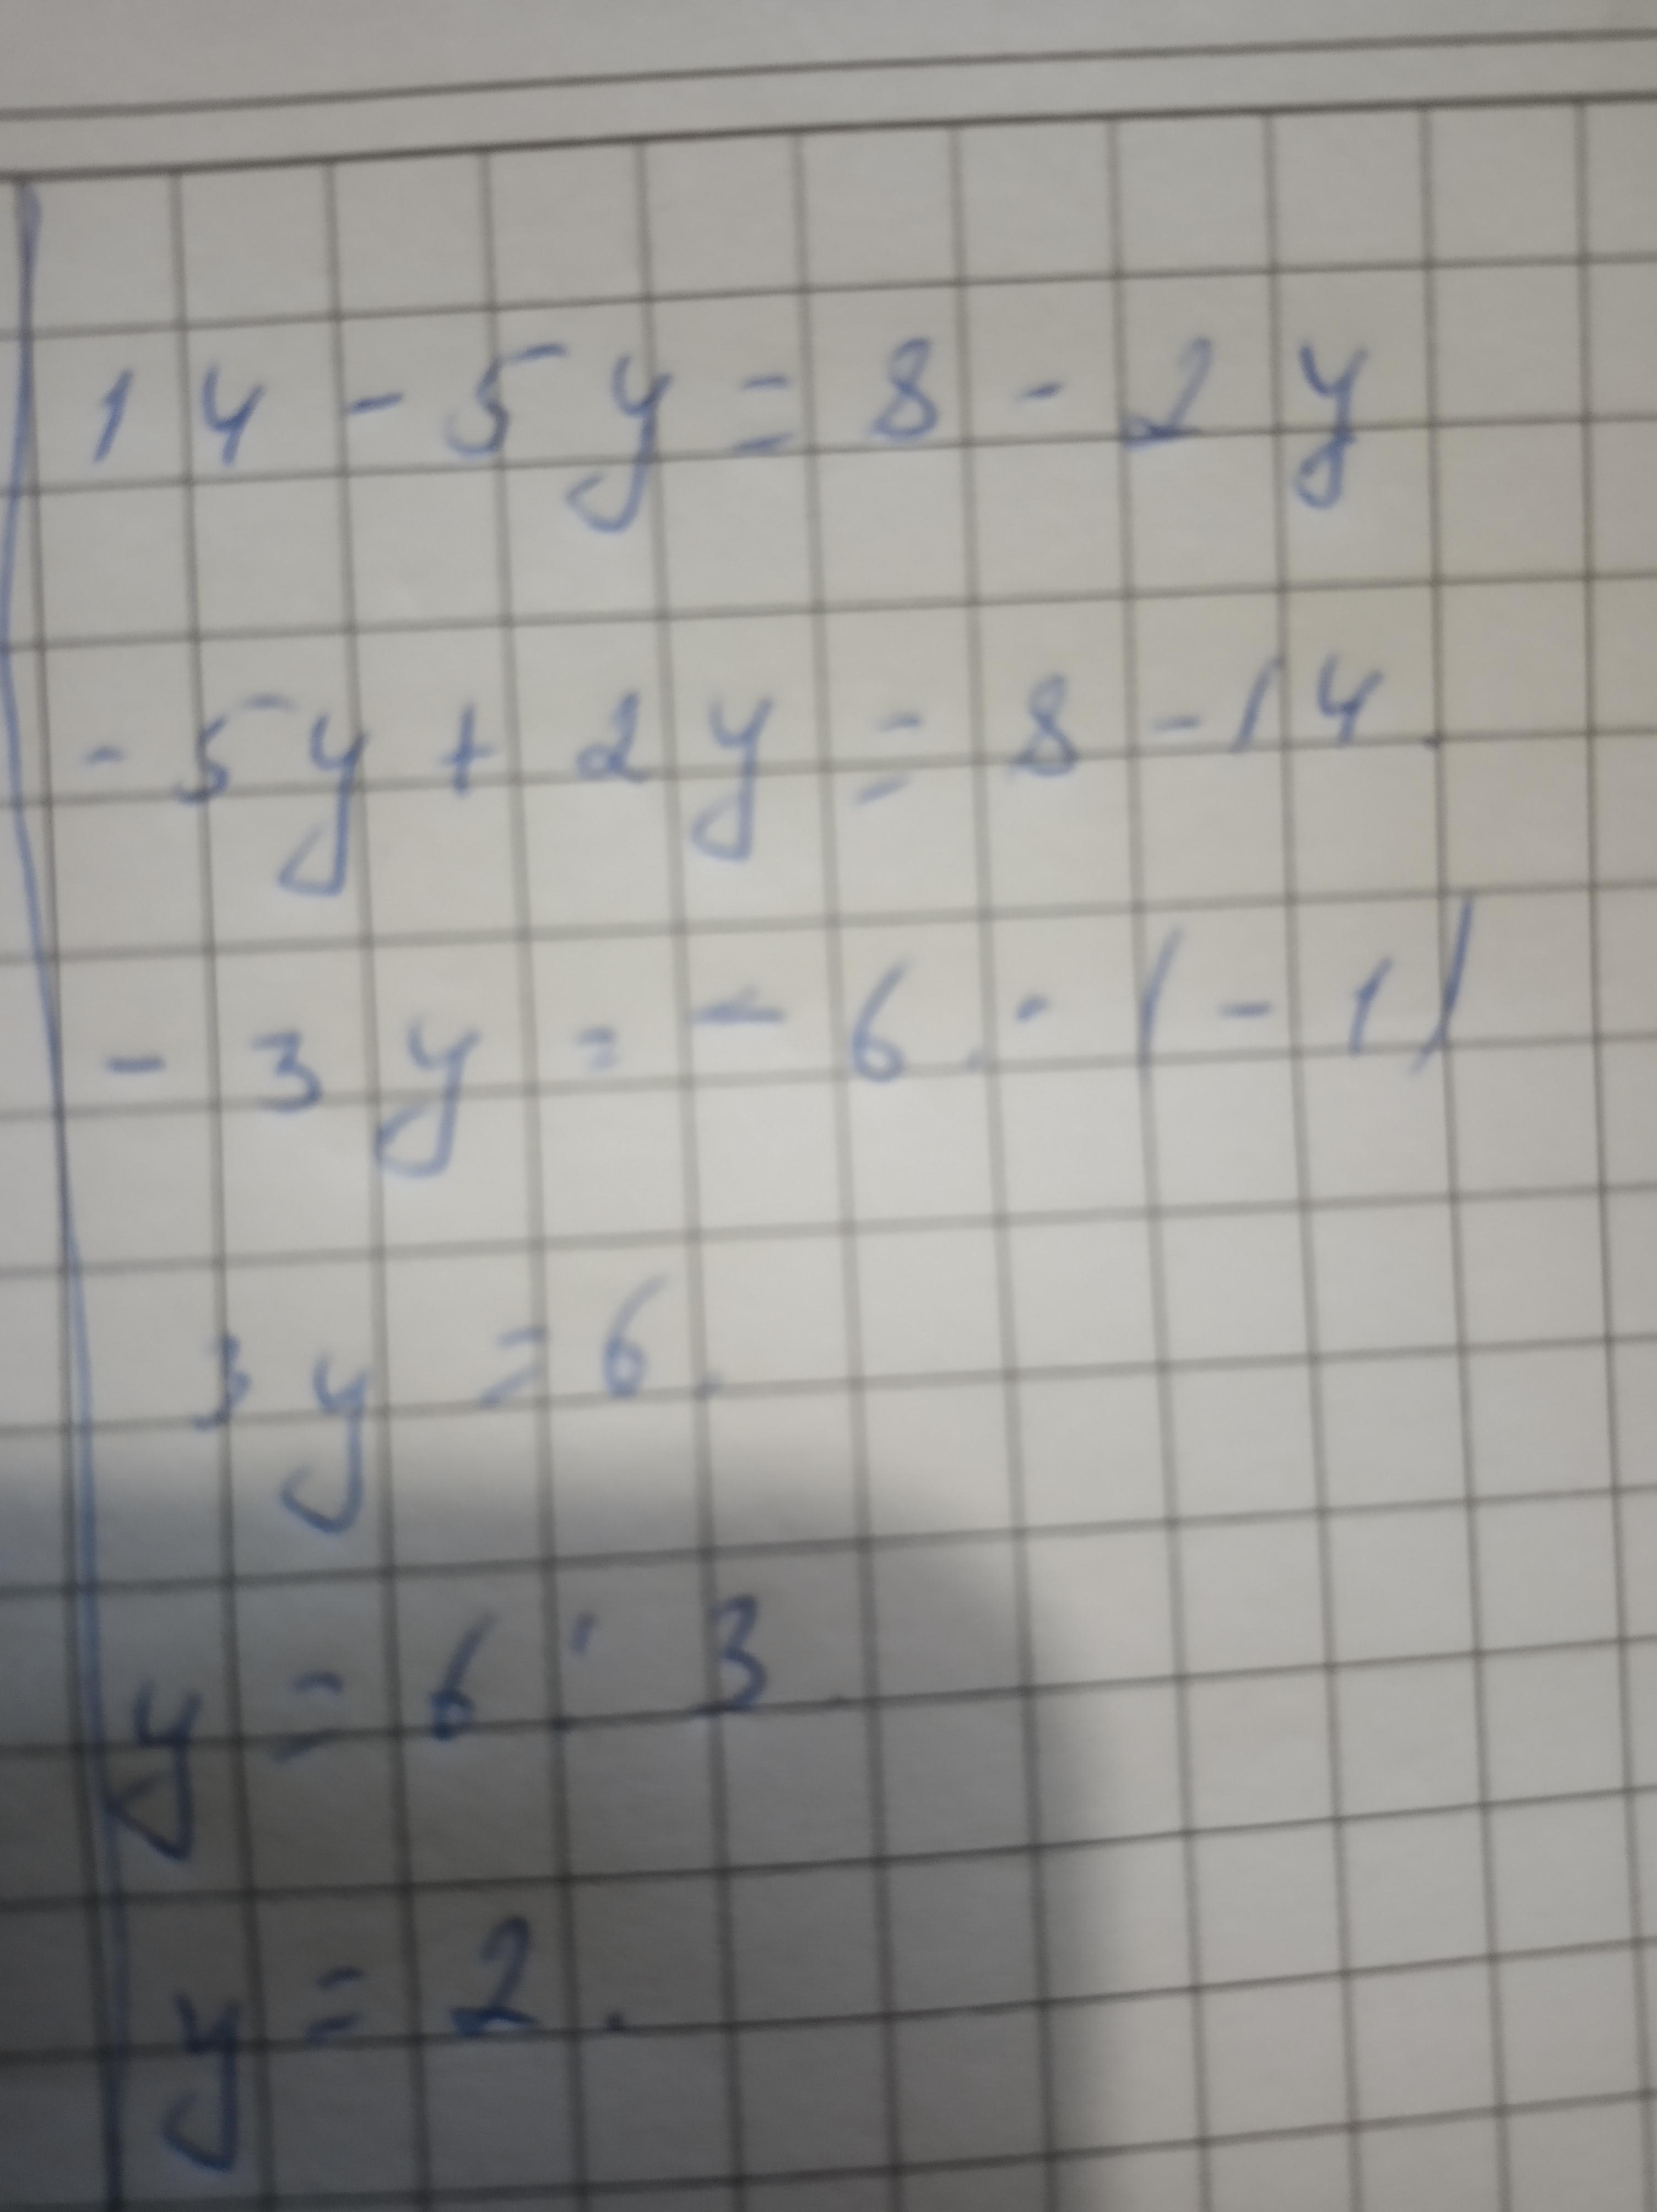 14 - 5y = 8 - 2y
- 5y + 2y = 8 - 14.
- 3y = - 6. · (- 1)
3y = 6.
y = 6 : 3.
y = 2.